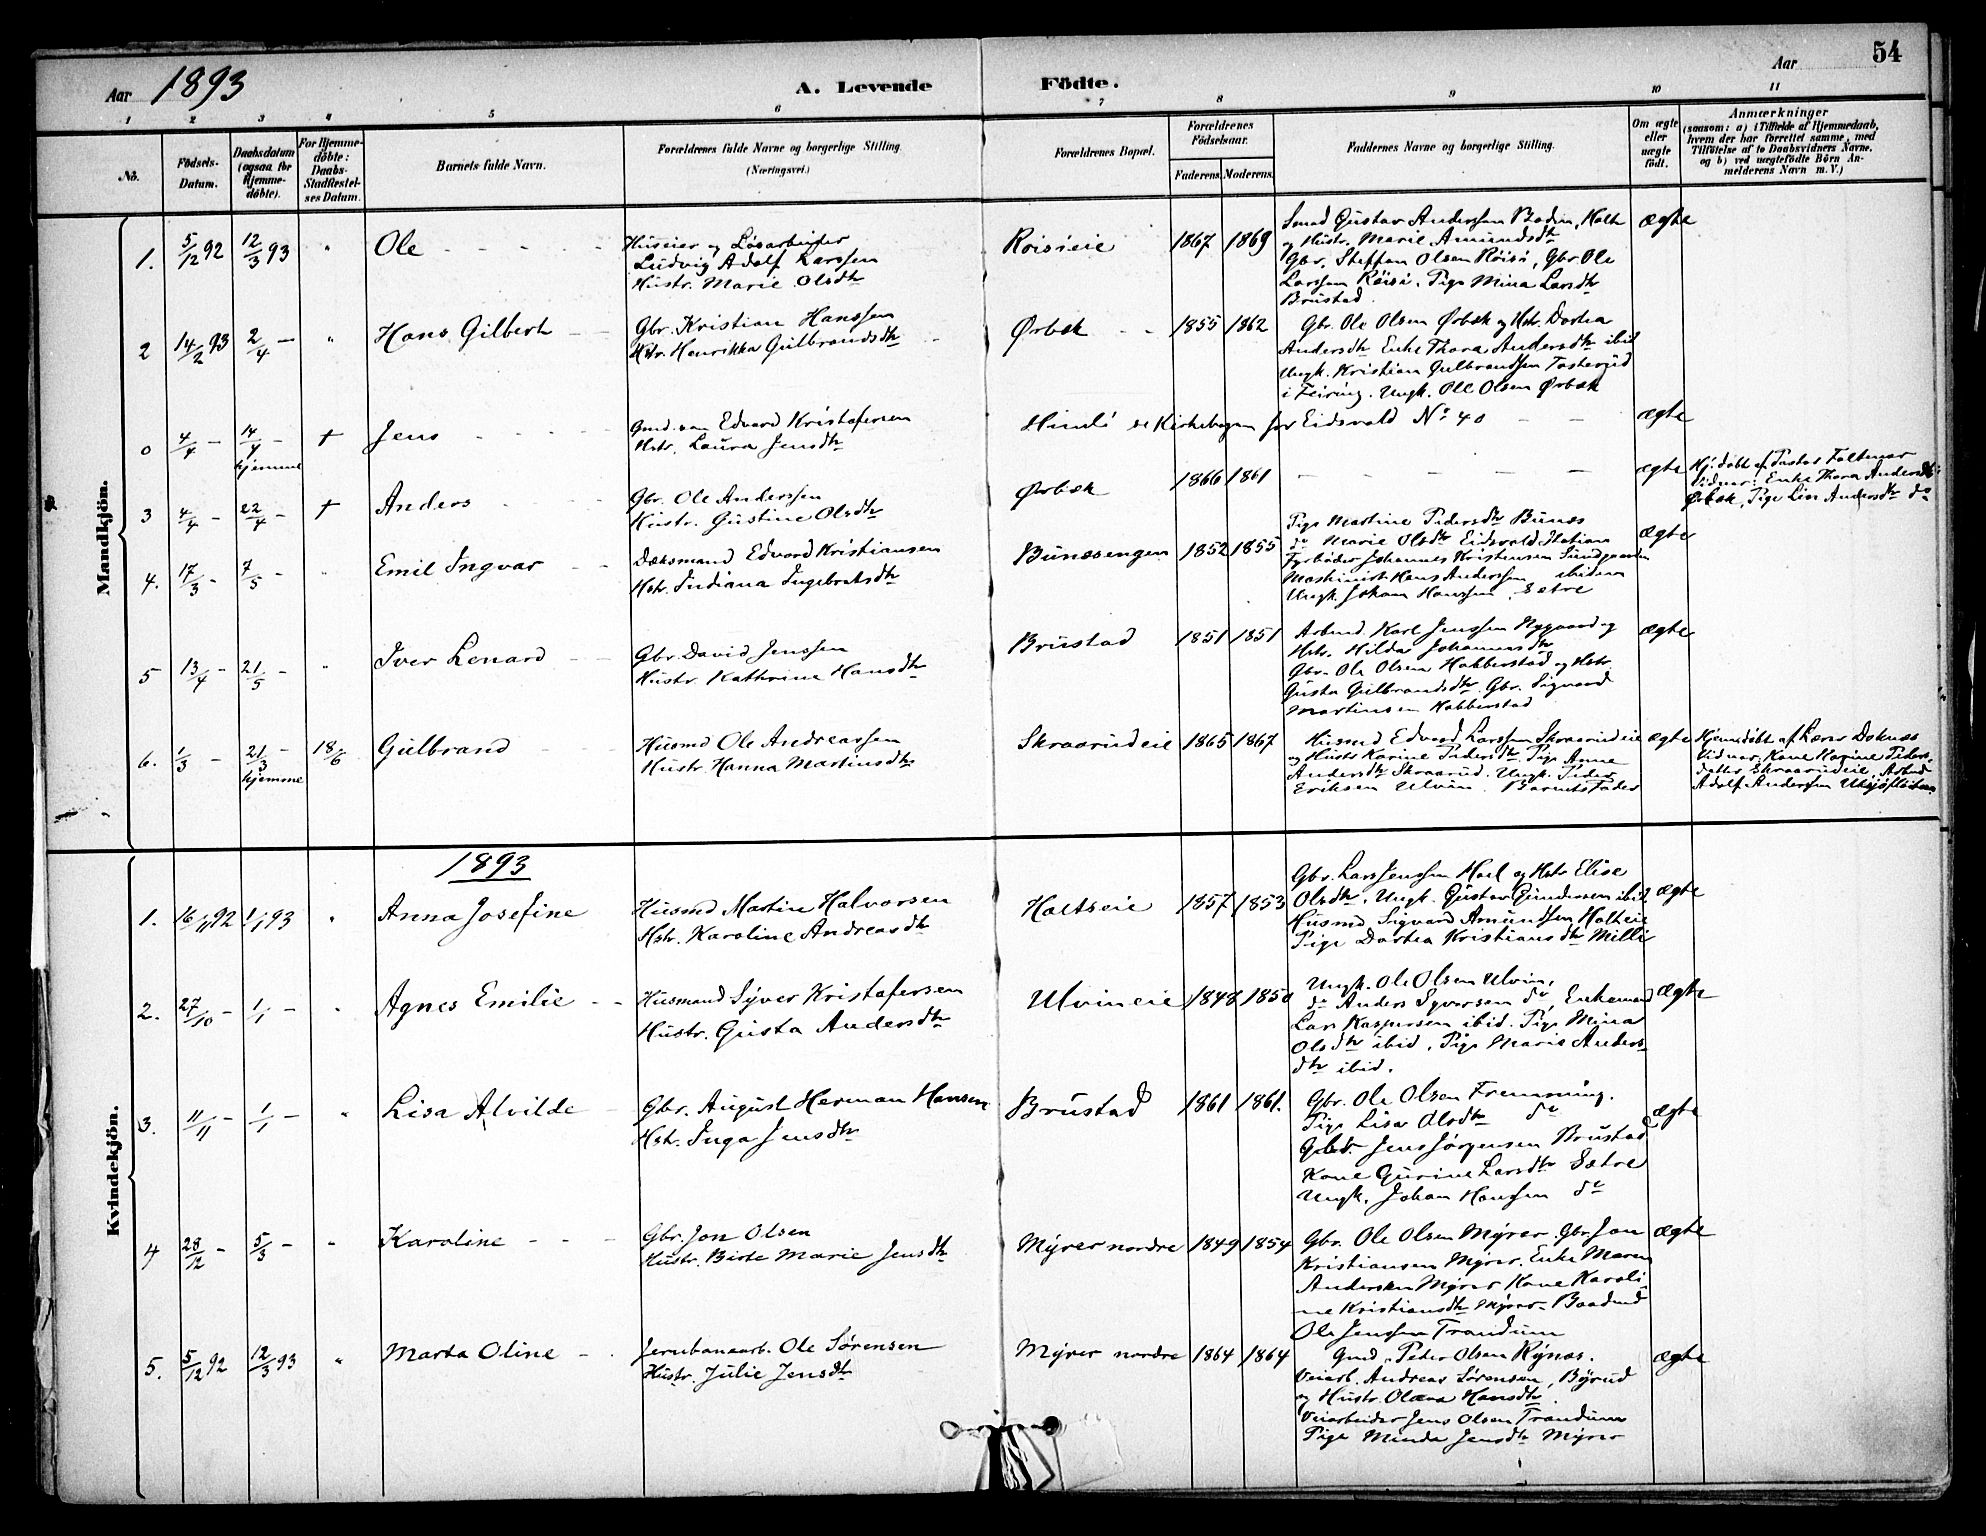 54
Aar 1893 A. Levende Födte. Aar
1 2 3 4 5 6 7 8 9 10 11
No. Födsels-Datum. Daabsdatum (ogsaa for Hjemmedøbte). For Hjemmedøbte: Daabs-Stadfæstelses Datum. Barnets fulde Navn. Forældrenes fulde Navne og borgerlige Stilling. (Næringsvei.) Forældrenes Bopæl. Forældrenes Födselsaar. Faderens. Moderens. Faddernes Navne og borgerlige Stilling. Om ægte eller uægte født. Anmærkninger (saasom: a) i Tilfælde af Hjemmedaab, hvem der har forrettet samme, med Tilføielse af to Daabsvidners Navne, og b) ved uægtefödte Börn Anmelderens Navn m. V.)
Mandkjön.
1. 5/12 92 12/3 93 " Ole
Huseier og Løsarbeider
Ludvig Adolf Larssen
Hustr. Marie Olsdtr
Roisieie 1867 1869
Smed Gustav Anderssen Boden, Holte
og Hustr. Marie Amundsdtr
Gbr. Steffen Olsen Röisi, Gbr Ole
Larssen Röisi. Pige Mina Larsdtr
Brustad.
ægte
2 14/2 93 2/4 — " Hans Gilbert
Gbr. Kristian Hanssen
Hstr. Henrikka Gulbrandsdtr
Ørbæk 1855 1862
Gbr. Ole Olsen Ørbæk og Hstr. Dortea
Andersdtr Enke Thora Andersdtr ibid
Ungk. Kristian Gulbrandsen Tosterud
i Feiring. Ungk. Ole Olsen Ørbæk
0 4/4 — 14/4 — hjemme + Jens
Gmd. Edvard Kristofersen
Hstr. Laura Jensdtr
se Kirkebogen for Eidsvold No 40 — —
ægte
3 4/4 — 22/4 — + Anders
Gbr. Ole Anderssen
Hustr. Gustine Olsdtr
Ørbæk 1866 1861 — — — — —
ægte
Hj. døbt af Pastor
Vidner: Enke Thora Andersdtr
Ørbæk, Pige Lise Andersdtr do
4. 17/3 — 7/5 — " Emil Ingvar
Dæksmand Edvard Kristiansen
Hstr. Indiana Ingebretsdtr
Bunæsengen 1852 1855
Pige Martine Pedersdtr Bunæs
do Marie Olsdtr Eidsvold Station
Fyrbøder Johannes Kristensen Sundgaarden
Maskinist Hans Anderssen ibidem
Ungk. Johan Hanssen, Sætre
ægte
5 13/4 — 21/5 — " Iver Lenard
Gbr. David Jenssen
Hustr. Kathrine Hansdtr
Brustad 1851 1851
Arbmd. Karl Jenssen Nygaard og
Hstr. Hilda Johannesdtr
Gbr. Ole Olsen Habberstad og Hstr.
Gusta Gulbrandsdtr. Gbr. Sigvard
Martinsen Habberstad
ægte
6. 1/3 — 21/3 — hjemme 18/6 Gulbrand
Husmd Ole Andreassen
Hustr. Hanna Martinsdtr
Skraarudeie 1865 1867
Husmd Edvard Larssen Skraarudeie
og Husts Karine Pedersdtr Pige Anne
Andersdtr Skraarud. Ungk. Peder
Eriksen Ulvin. Barnets Fader
ægte
Hjemdøbt af Lærer Doknæs
Vidner: Kone Karine Peders-
datter, Skraarudeie, Arbmd
Adolf Anderssen
Kvindekjön.
1893
1. 16/10 92 1/1 93 " Anna Josefine
Husmd Martin Halvorsen
Hstr. Karoline Andreasdtr
Holtseie 1857 1853
Gbr. Lars Jenssen Hoel og Hstr Elise
Olsdtr. Ungk. Gustav Gundersen ibid,
Husmd Sigvard Amundsen Holteie
Pige Dortea Kristiansdtr Milli
ægte
2. 27/10 — 1/1 — " Agnes Emilie
Husmand Syver Kristofersen
Hustr. Gusta Andersdtr
Ulvineie 1848 1850
Ungk. Ole Olsen Ulvin,
do Anders Syversen do, Enkemand
Lars Kaspersen ibid. Pige Mina
Olsdtr ibid, Pige Marie Anders-
dtr ibid.
ægte
3. 11/11 — 1/1 — " Lisa Alvilde
Gbr. August Herman Hansen
Hstr. Inga Jensdtr
Brustad 1861 1861.
Gbr. Ole Olsen Fremming.
Pige Lisa Olsdtr do
Gbr. Jens Jørgensen Brustad
Kone Gurine Larsdtr Sætre
Ungk. Johan Hanssen do
ægte
4 28/12 — 5/3 — " Karoline
Gbr. Jon Olsen
Hustr. Birte Marie Jensdtr
Myrer nordre 1849 1854
Gbr. Ole Olsen Myrer. Gbr. Jon
Kristiansen Myrer. Enke Maren
Andersen Myrer Kone Karoli-
ne Kristiansdtr Myrer. Baadmd
Ole Jenssen Trandum
ægte
5. 5/12 92 12/3 93 " Marta Oline
Jernbanearb. Ole Sørensen
Hustr. Julie Jensdtr
Myrer nordre 1864 1864
Gmd. Peder Olsen Rynæs.
Veiarb. Andreas Sørensen, Byrud
og Hustr. Olava Hansdtr.
Veiarbeider Jens Olsen Trandum
Pige Minda Jensdtr Myrer
ægte